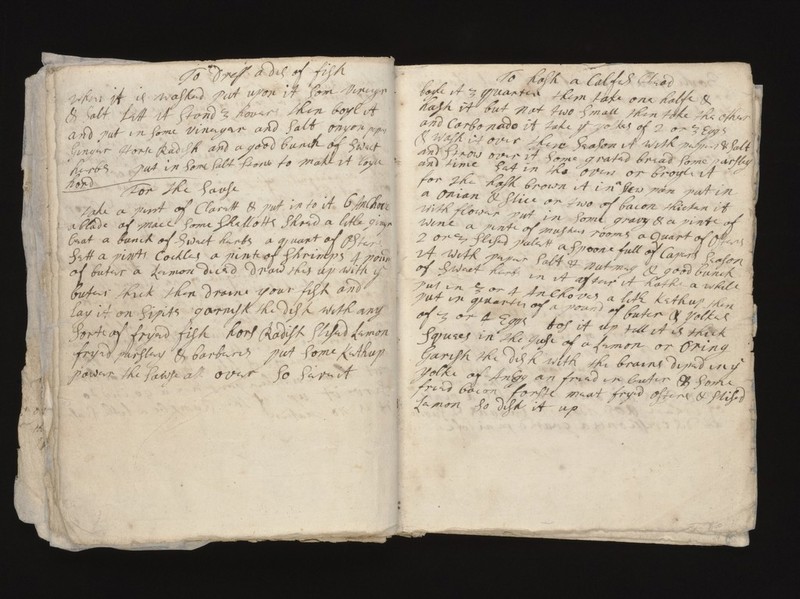 To Dress a dis of fish
when it is washed put upon it som vineger
& salt lett it stond 3 howers then boyle it
and put in some vinegar and salt onyon
Ginger hors Radish and a good bunch of sweet
herbs put in som salt to make it boyle
hard
For the sause
Take a pint of Clarett & put in to it 6 Anchove
a blade of mace some shellotts shred a litle ginger
beat a bunch of sweet herbs a quart of Oster
lett a pinte Cockles a pinte of shrimps 4 poun
of buter a Lemon diced draw this up with ye
buter thick then draine your fish and
lay it on sipits garnish the dish with any
sorte of fryed fish hors Radish slised Lemon
fryed parsley & barberis put some kethup
power the sawse all over so serve it
To hash a Calfes Head
boyle it 3 quarters then take one halfe &
hash it but not two small then take the other
and Carbonado it take ye yolkes of 2 or 3 Eggs
& wash it over then season it with peper & salt
and strow over it some grated bread some parsley
and time sett in the oven or broyle it
for the hash brown it in ye pan put in
a onion & slice or two of bacon thicken it
with flower put in some gravy & a pinte of
wine a pinte of mushrooms a quart of Osters
2 or 3 slised palets a spoone full of Capers season
it with peper salt & nutmeg & good bunch
of sweet herbs in it after it hathe a while
put in 3 or 4 Anchoves a litle kethup then
put in quarter of a pound of buter & yolkes
of 3 or 4 Eggs tos it up till it is thick
squees in the juse of a Lemon or Oring
Garish the dish with the brains diped in ye
yolke of and fried in buter & some
fried bacon forst meat fryed osters & slised
Lemon so dish it up